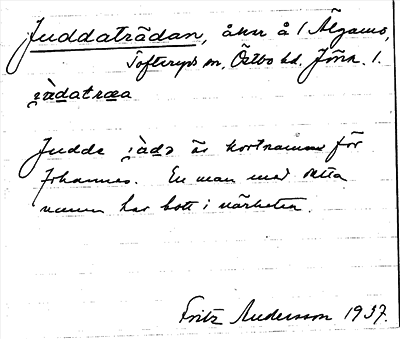 Juddaträdan, åker å 1 Älganäs,
Tofteryds sn, Östbo hd. Jönk. l.
jàdatræa
Judde jàdə är kortnamn för
Johannes. En man med detta
namn har bott i närheten.
Fritz Andersson 1937.